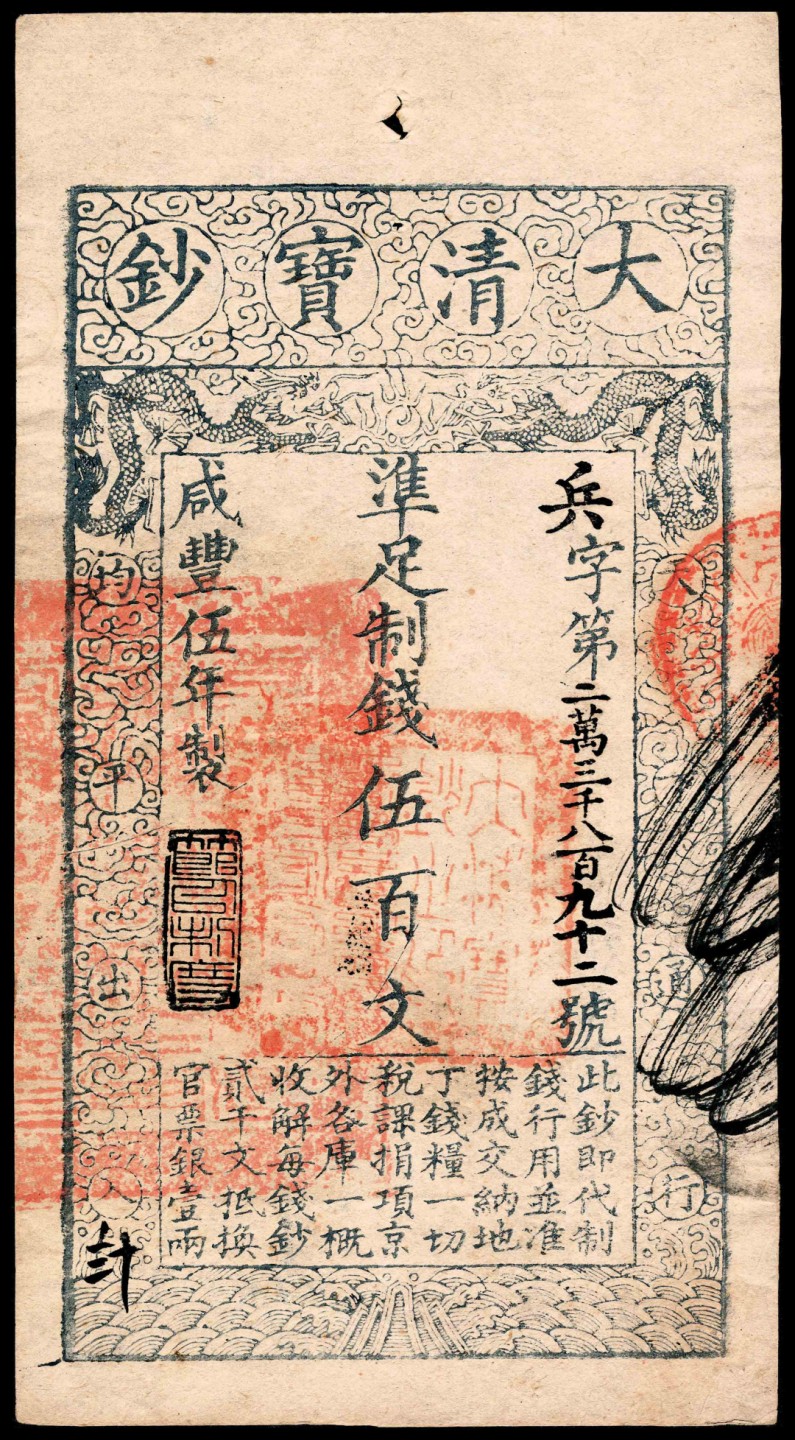 大清寶鈔
天下通行
均平出入
兵字第二萬三千八百九十二號
準足制錢伍百文
咸豐伍年製
節以制度
此鈔即代制
錢行用並准
按成交納地
丁錢糧一切
稅課捐項京
外各庫一概
收解每錢鈔
貳千文抵換
官票銀壹兩